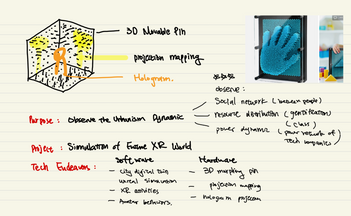 3D Movable Pin
projection mapping
Hologram.
observe :
Social network ( between people )
resource distribution ( gentrification )
( class )
power dynamic ( power network of
Tech companies )
Purpose : Observe the Urbanism Dynamic
Project : Simulation of Future XR World
Tech Endeavors :
Software
- city digital twin
- XR activities
- Avatar behaviors.
Hardware
- 3D mapping pin
- projection mapping
- hologram projection